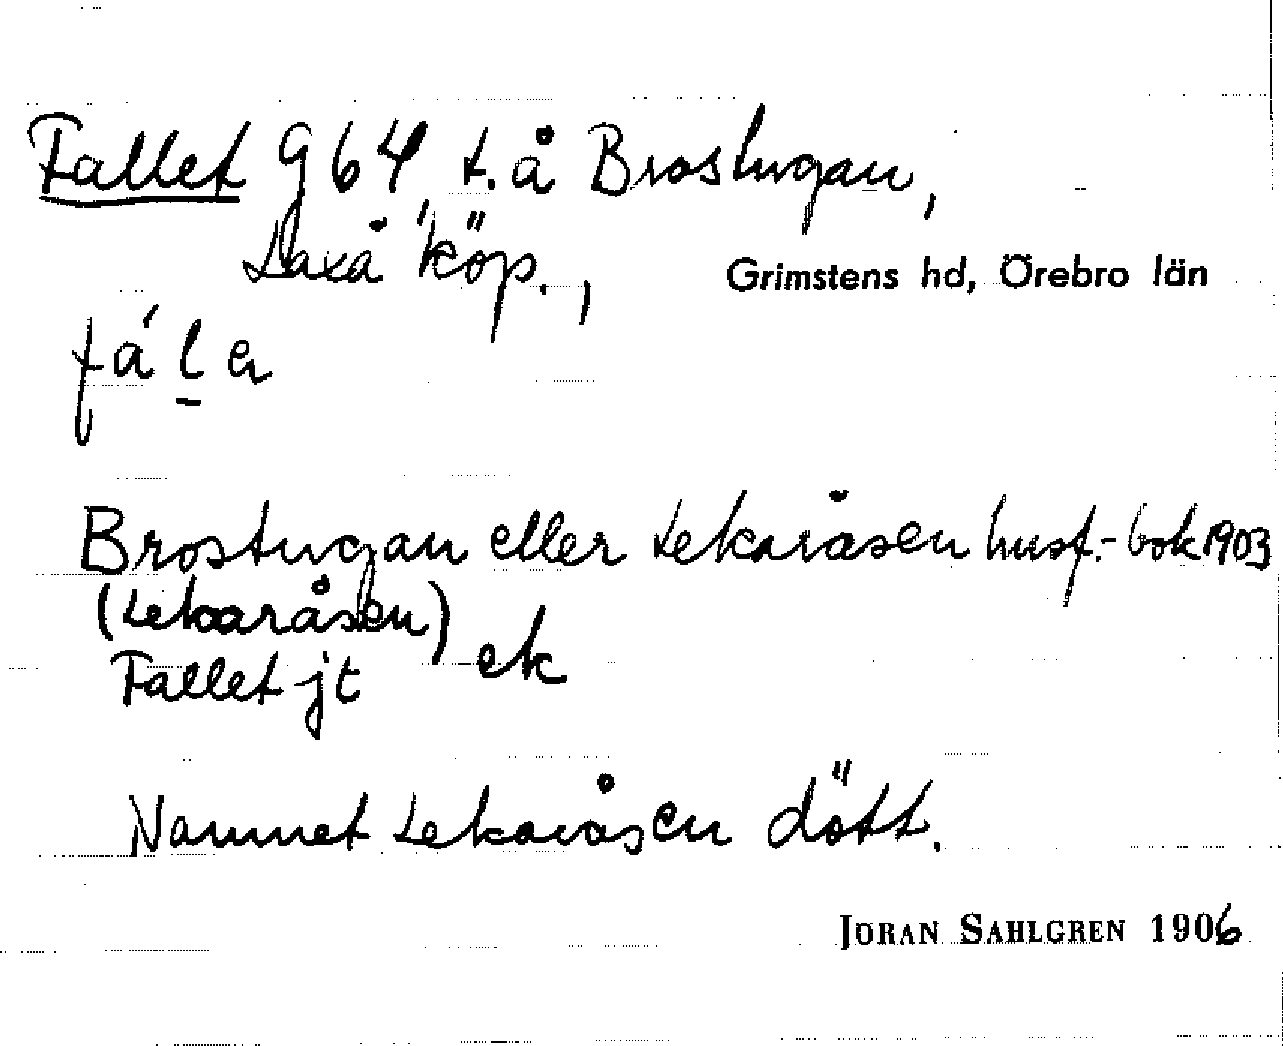 Fallet g 64 t. å Brostugan,
Laxå köp.,
Grimstens hd, Örebro län
fá l̲ a
Brostugan eller Lekaråsen husf.-bok 1903
(Lekaråsen)
Fallet jt ek
Namnet Lekaråsen dött.
JÖRAN SAHLGREN 1906